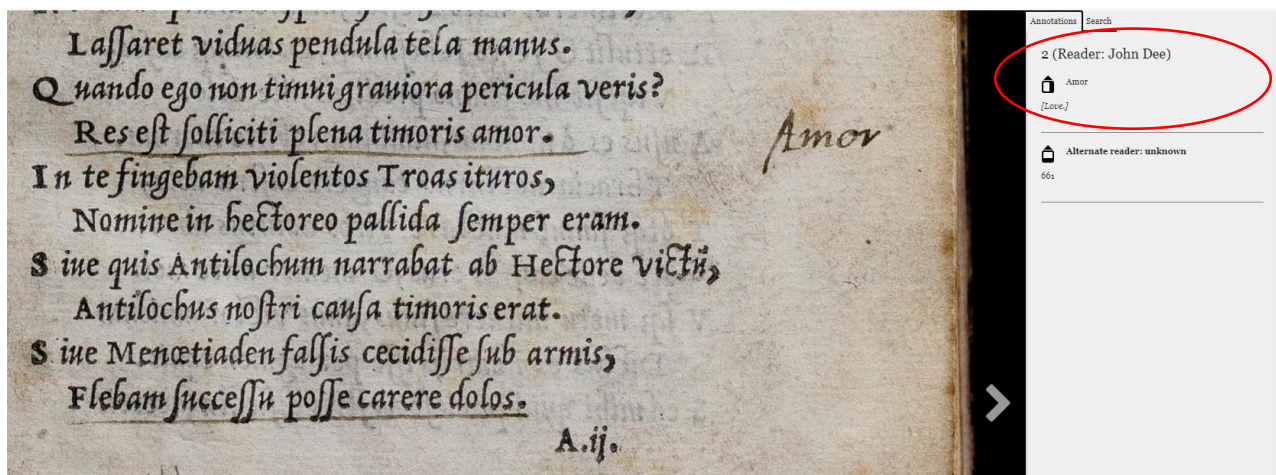 Laſſaret viduas pendula tela manus.
Quando ego non timui grauiora pericula veris?
Res eſt ſolliciti plena timoris amor.
Amor
In te fingebam violentos Troas ituros,
Nomine in hectoreo pallida ſemper eram.
Siue quis Antilochum narrabat ab Hectore victū,
Antilochus noſtri cauſa timoris erat.
Siue Menœtiaden falſis cecidiſſe ſub armis,
Flebam ſucceſſu poſſe carere dolos.
A.ij.
Annotations Search
2 (Reader: John Dee)
Amor
[Love.]
Alternate reader: unknown
661